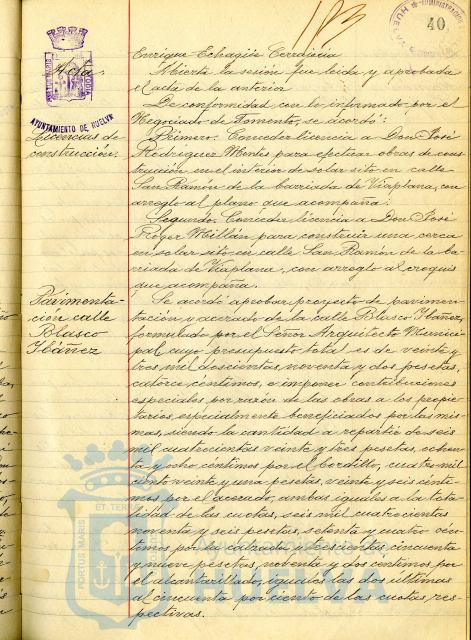 40
Acta.
AYUNTAMIENTO DE HUELVA
Licencias de
construcción.
Enrique Echagüe Cerrajería
Abierta la sesión fue leida y aprobada
el acta de la anterior
De conformidad con lo informado por el
Negociado de Fomento, se acordó:
Primero: Conceder licencia a Don José
Rodríguez Montes para efectuar obras de cons-
trucción en el interior de solar sito en calle
San Ramón de la barriada de Viaplana, con
arreglo al plano que acompaña.
Segundo. Conceder licencia a Don José
Roger Millán para construir una cerca
en solar sito en calle San Ramón de la ba-
rriada de Viaplana, con arreglo al croquis
que acompaña.
Pavimenta-
ción calle
Blasco
Ibáñez
Se acordó aprobar proyecto de pavimen-
tación y acerado de la calle Blasco Ibáñez,
formulado por el Señor Arquitecto Munici-
pal cuyo presupuesto total es de veinte y
tres mil doscientas, noventa y dos pesetas,
catorce céntimos, e imponer contribuciones
especiales por razón de las obras a los propie-
tarios especialmente beneficiados por las mis-
mas, siendo la cantidad a repartir de seis
mil cuatrocientas veinte y tres pesetas, ochen-
ta y ocho céntimos por el bordillo, cuatro mil
ciento veinte y una pesetas, veinte y seis cénti-
mos por el acerado, ambas iguales a la tota-
lidad de las cuotas, seis mil cuatrocientas
noventa y seis pesetas, setenta y cuatro cén-
timos por la calzada y trescientas, cincuenta
y nueve pesetas, noventa y dos céntimos por
el alcantarillado, iguales las dos últimas
al cincuenta por ciento de las cuotas res-
pectivas.
PORTUS MARIS
ET TERRÆ
Ayuntamiento de
HUELVA